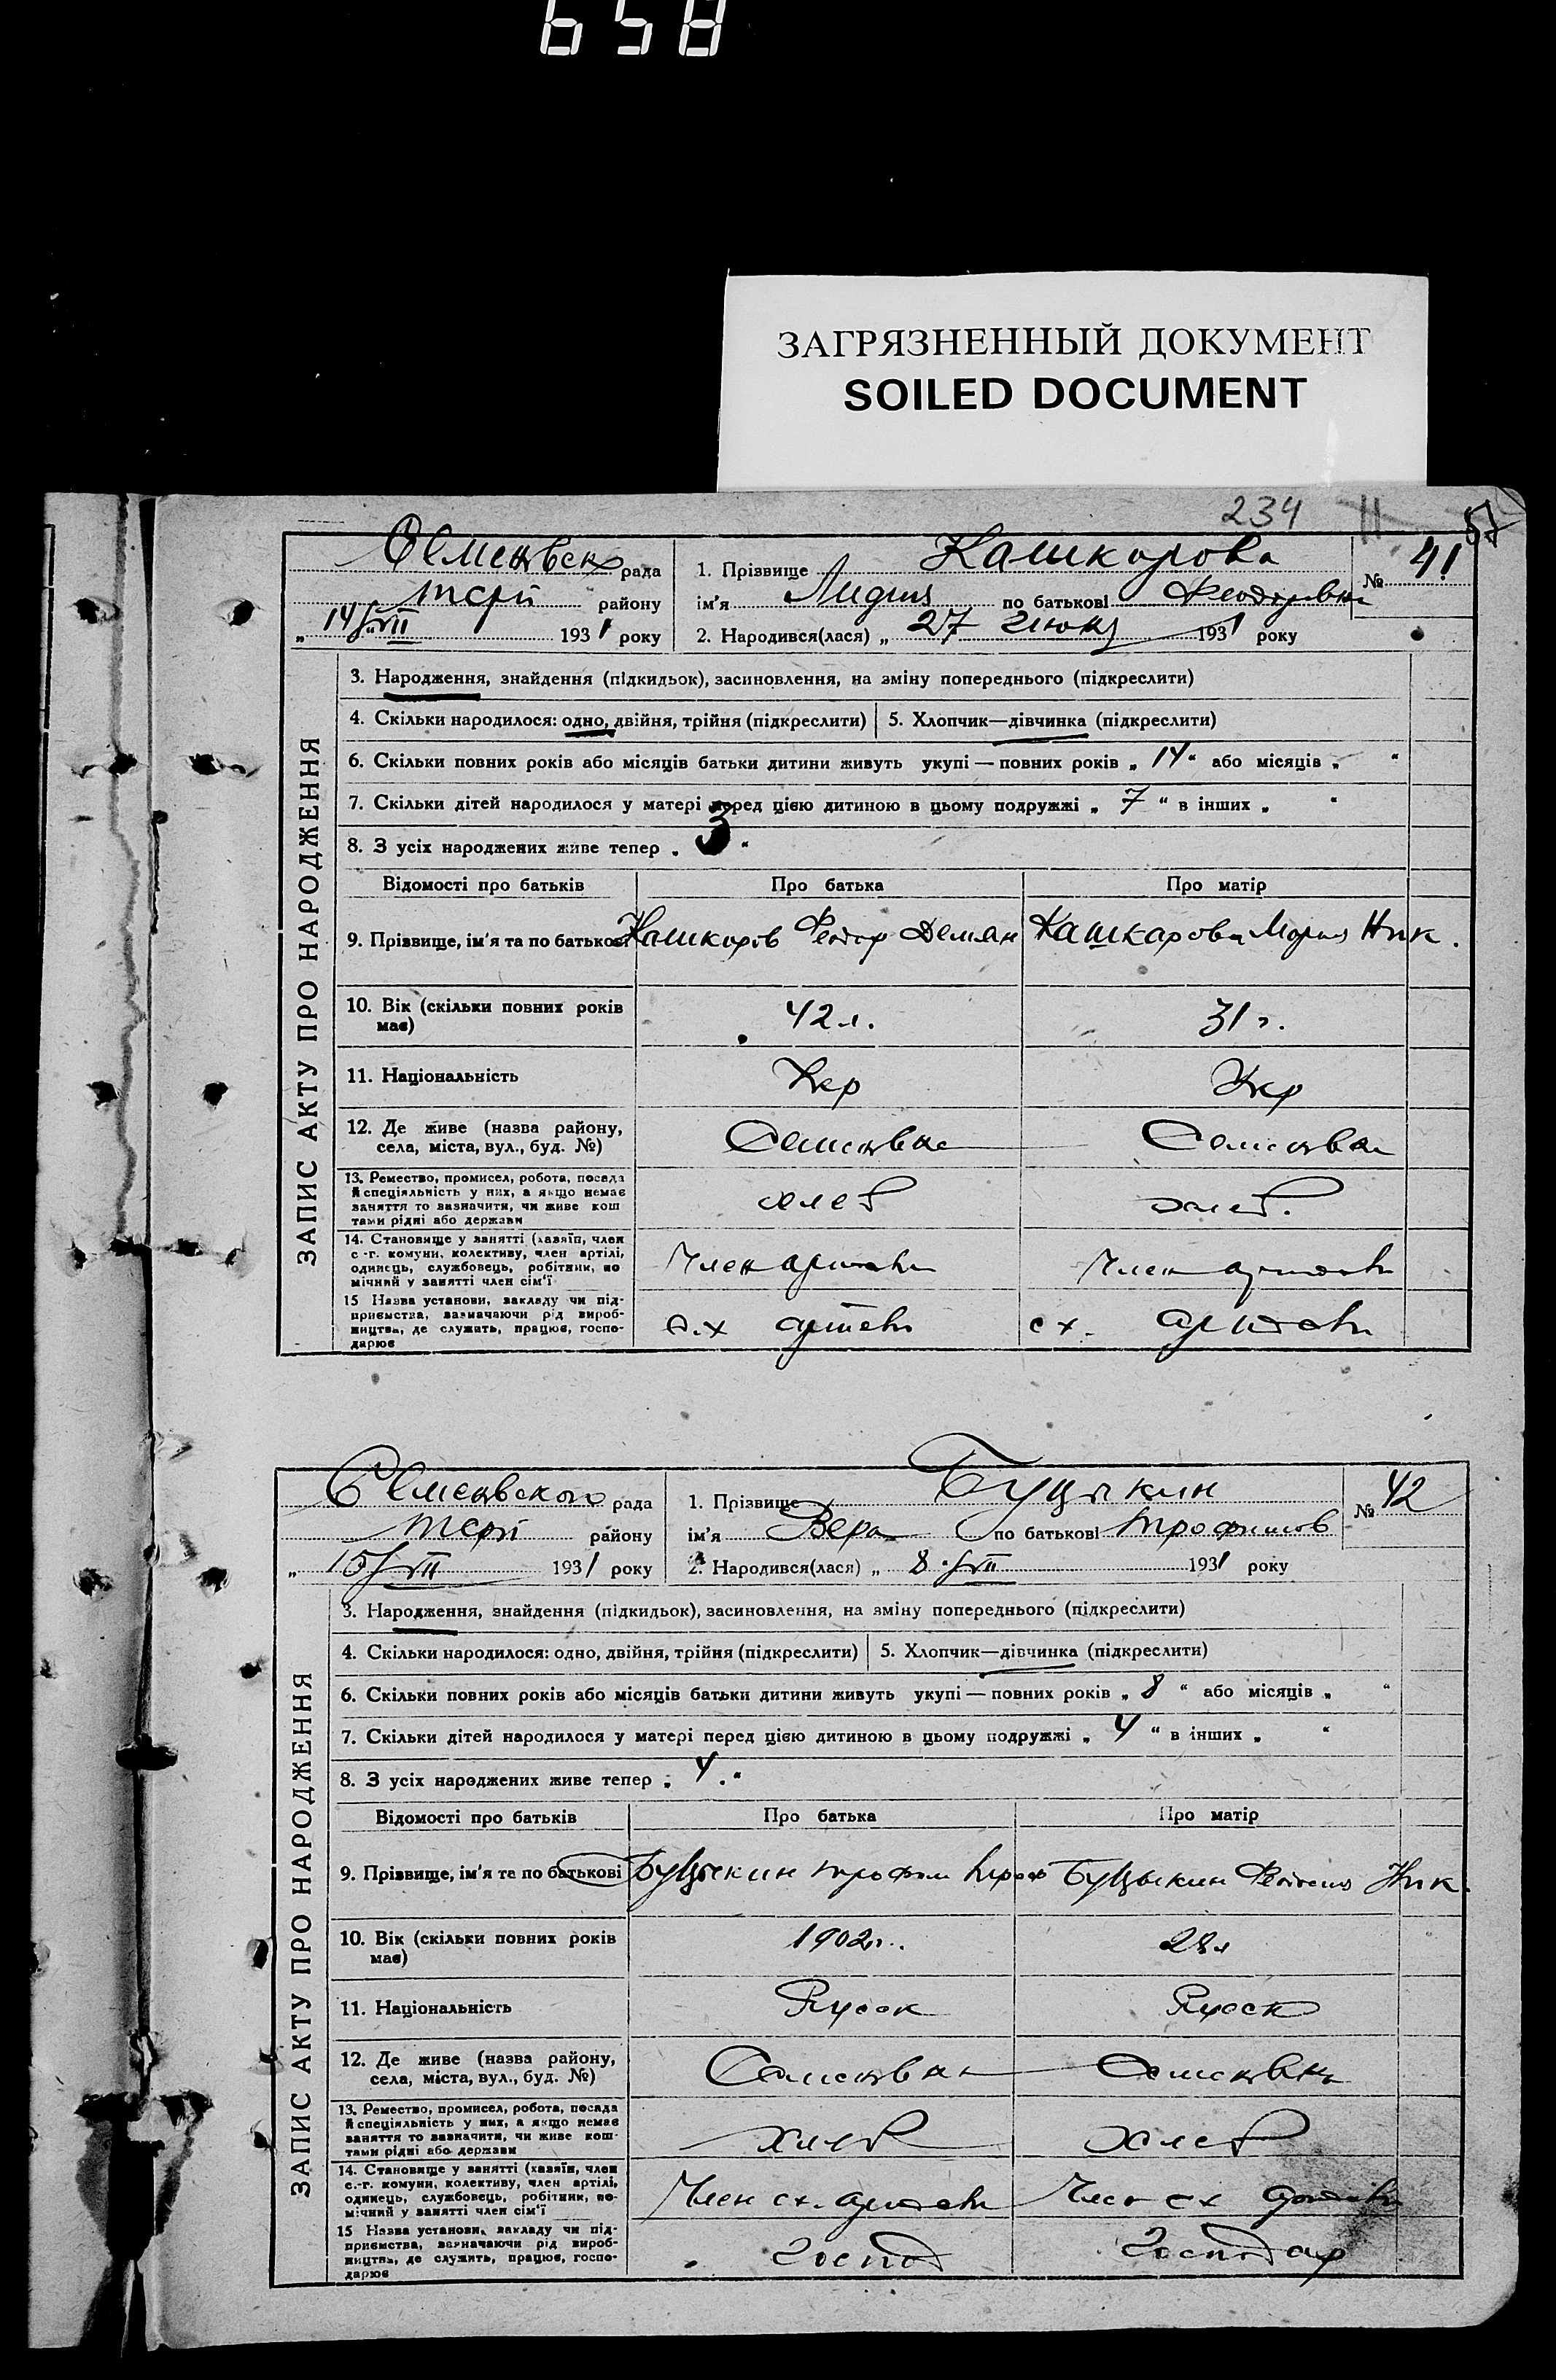 658
ЗАГРЯЗНЕННЫЙ ДОКУМЕНТ
SOILED DOCUMENT
234 57
ЗАПИС АКТУ ПРО НАРОДЖЕННЯ
Семеновск рада
1. Прізвище Кашкорова
№ 41
району
ім'я Лидия по батькові Феодоровна
„ 14/VII 1931 року
2. Народився(лася) „ 27 Июня 1931 року
3. Народження, знайдення (підкидьок), засиновлення, на зміну попереднього (підкреслити)
4. Скільки народилося: одно, двійня, трійня (підкреслити) 5. Хлопчик—дівчинка (підкреслити)
6. Скільки повних років або місяців батьки дитини живуть укупі — повних років „ 14 “ або місяців „ “
7. Скільки дітей народилося у матері перед цією дитиною в цьому подружжі „ 7 “ в інших „ “
8. З усіх народжених живе тепер „ 3 “
Відомості про батьків Про батька Про матір
9. Прізвище, ім'я та по батькові Кашкоров Феодор Демян Кашкарова Мария Ник.
10. Вік (скільки повних років має) 42 л. 31 г.
11. Національність Укр Укр
12. Де живе (назва району, села, міста, вул., буд. №) Семеновка Семеновка
13. Ремество, промисел, робота, посада й спеціяльність у них, а якщо немає заняття то зазначити, чи живе кош тами рідні або держави хлеб хлеб.
14. Становище у занятті (хазяїн, член с.-г. комуни, колективу, член артілі, одинець, службовець, робітник, по мічний у занятті член сім'ї Член артели Член артели
15 Назва установи, закладу чи під- приємства, зазначаючи рід вироб- ництва, де служить, працює, госпо- дарює с.х артели сх. артели
ЗАПИС АКТУ ПРО НАРОДЖЕННЯ
Семеновского рада
1. Прізвище Буцыкин
№ 42
району
ім'я Вера по батькові Трофимов
„ 15/VII 1931 року
2. Народився(лася) „ 8/VII 1931 року
3. Народження, знайдення (підкидьок), засиновлення, на зміну попереднього (підкреслити)
4. Скільки народилося: одно, двійня, трійня (підкреслити) 5. Хлопчик—дівчинка (підкреслити)
6. Скільки повних років або місяців батьки дитини живуть укупі — повних років „ 8 “ або місяців „ “
7. Скільки дітей народилося у матері перед цією дитиною в цьому подружжі „ 4 “ в інших „ “
8. З усіх народжених живе тепер „ 4 “
Відомості про батьків Про батька Про матір
9. Прізвище, ім'я та по батькові Буцыкин Трофим Буцыкин Ник.
10. Вік (скільки повних років має) 1902 г. 28 л
11. Національність Руск Руск
12. Де живе (назва району, села, міста, вул., буд. №) Семеновка Семеновка
13. Ремество, промисел, робота, посада й спеціяльність у них, а якщо немає заняття то зазначити, чи живе кош- тами рідні або держави хлеб хлеб
14. Становище у занятті (хазяїн, член с.-г. комуни, колективу, член артілі, одинець, службовець, робітник, по- мічний у занятті член сім'ї Член сх. артели Член сх артели
15 Назва установи, закладу чи під- приємства, зазначаючи рід вироб- ництва, де служить, працює, госпо- дарює господ господар